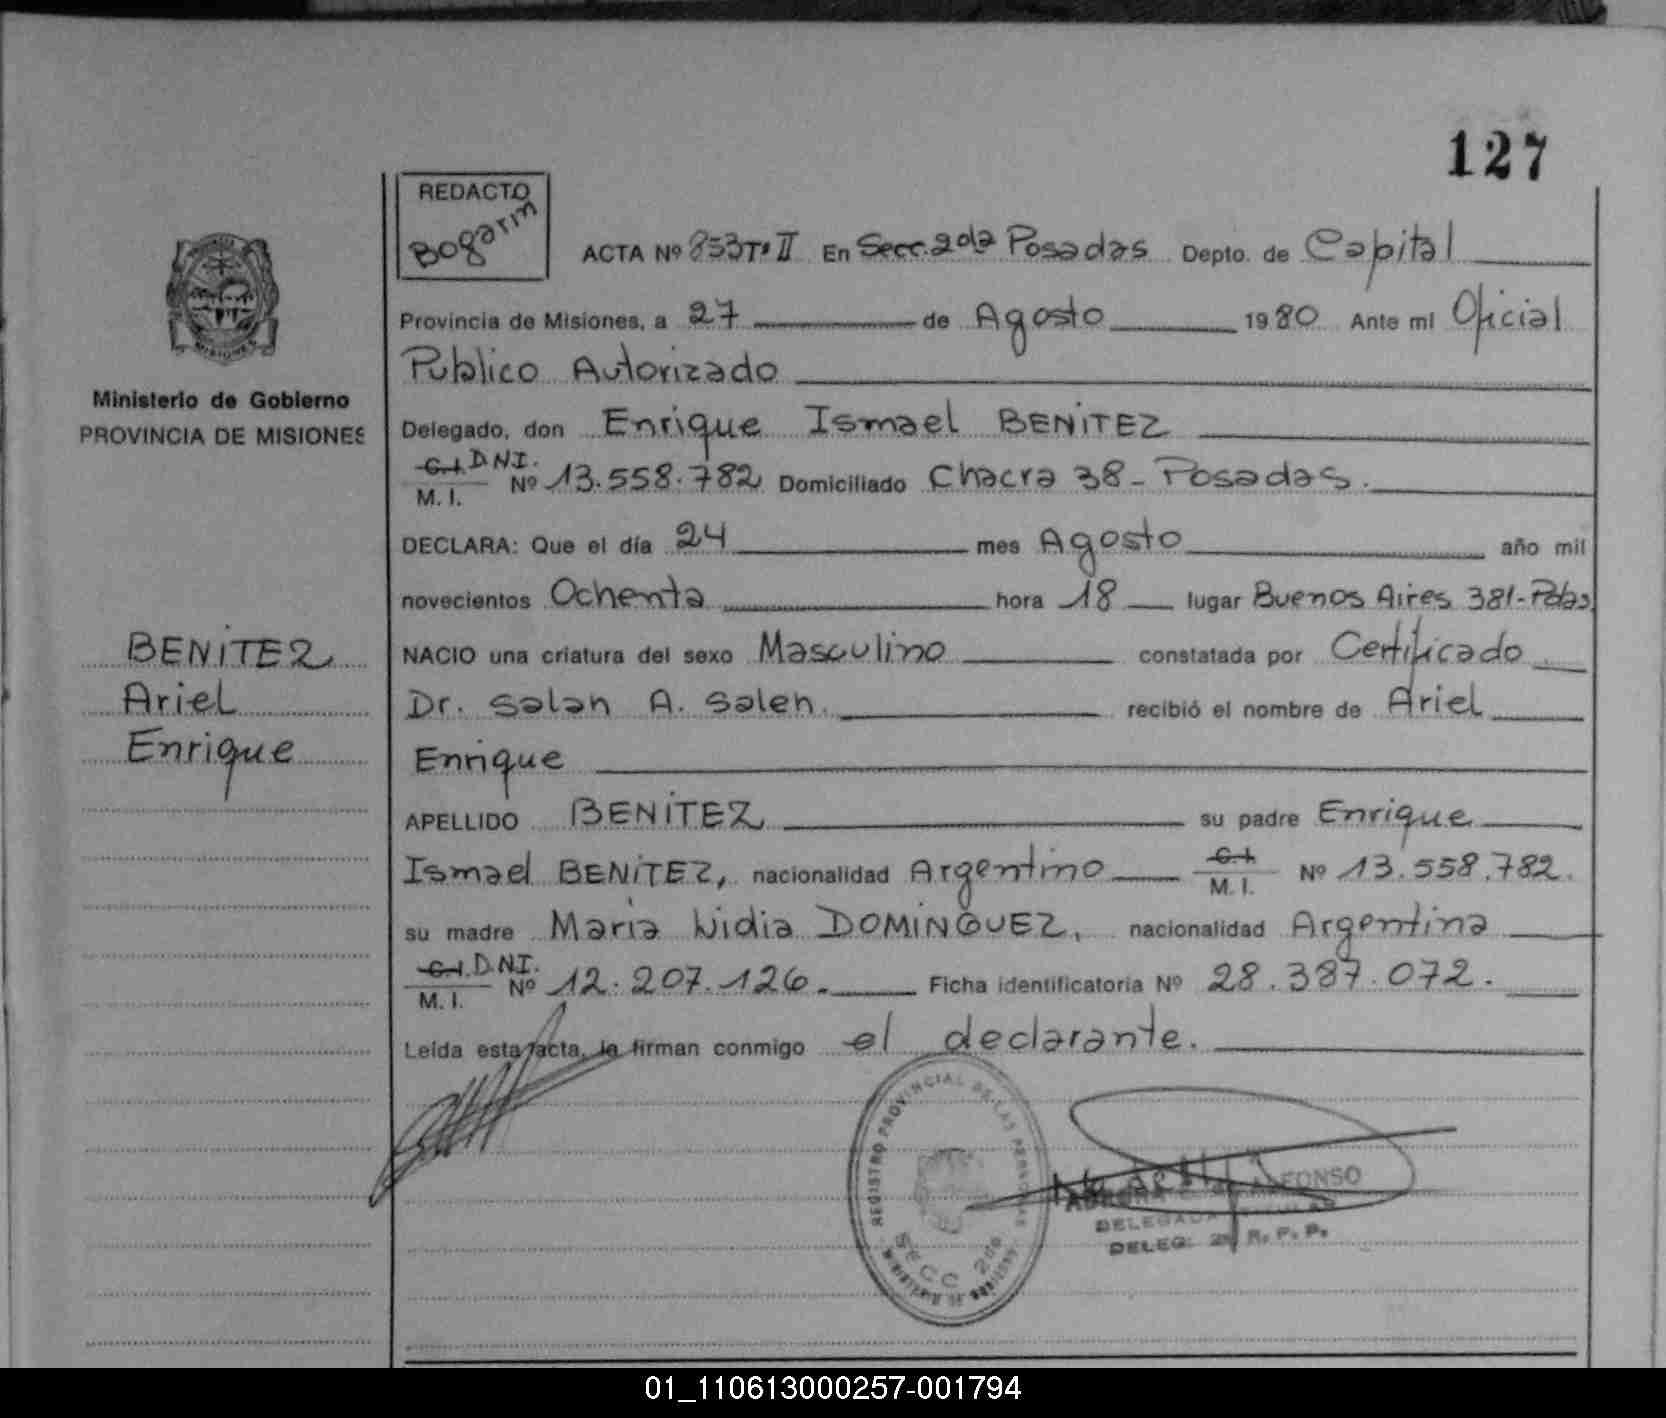 127
REDACTO
Bogarin
ACTA Nº 853Tº II En Secc. 2da Posadas Depto. de Capital
Provincia de Misiones, a 27 de Agosto 1980 Ante mí Oficial
Publico Autorizado
Delegado, don Enrique Ismael BENITEZ
C.I. D.N.I.
M. I. Nº 13.558.782 Domiciliado Chacra 38 - Posadas.
DECLARA: Que el día 24 mes Agosto año mil
novecientos Ochenta hora 18 lugar Buenos Aires 381-Pdas
NACIO una criatura del sexo Masculino constatada por Certificado
Dr. Salan A. Saleh. recibió el nombre de Ariel
Enrique
APELLIDO BENITEZ su padre Enrique
Ismael BENITEZ, nacionalidad Argentino C.I. M. I. Nº 13.558.782.
su madre Maria Lidia DOMINGUEZ, nacionalidad Argentina
C.I. D.N.I.
M. I. Nº 12.207.126. Ficha identificatoria Nº 28.387.072.
Leída esta acta, la firman conmigo el declarante.
MISIONES
Ministerio de Gobierno
PROVINCIA DE MISIONES
BENITEZ
Ariel
Enrique
REGISTRO PROVINCIAL DE LAS PERSONAS
SECC 2da
MINISTERIO DE GOBIERNO
ALFONSO
DELEGADA TITULAR
DELEG. 2a R. P. P.
01_110613000257-001794